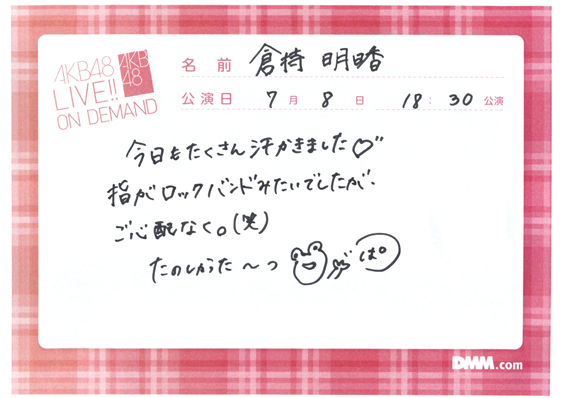 AKB48
LIVE!!
ON DEMAND
AKB
48
名前 倉持明日香
公演日 7月8日 18:30公演
今日もたくさん汗かきました♡"
指がロックバンドみたいでしたが、
ご心配なく。(笑)
たのしかった〜っ
ぱ。
DMM.com